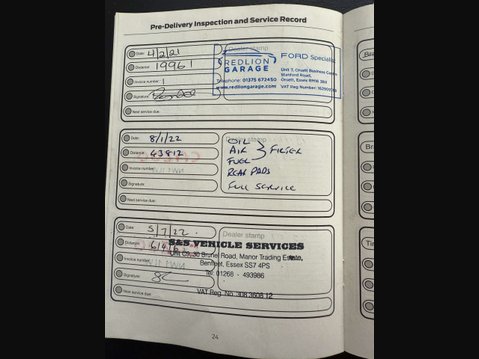 Pre-Delivery Inspection and Service Record
Date: 4/2/21
Distance: 19961
Invoice number: 1
Signature:
Next service due:
Dealer stamp
REDLION
GARAGE
FORD Specialist
Unit 7, Orsett Business Centre
Stanford Road,
Orsett, Essex RM16 3BX
Telephone: 01375 672450
www.redliongarage.com
VAT Reg Number:
Date: 8/1/22
Distance: 43812
Invoice number:
Signature:
Next service due:
Dealer stamp
OIL
AIR } FILTER
FUEL
REAR PADS
FULL SERVICE
Date: 5/7/22.
Distance:
Invoice number:
Signature:
Next service due:
Dealer stamp
S&S VEHICLE SERVICES
Brunel Road, Manor Trading Estate,
Benfleet, Essex SS7 4PS
Tel: 01268 - 493986
VAT Reg. No.
24